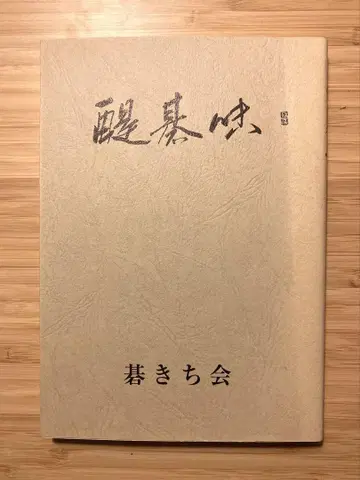 醍棊味
碁きち会